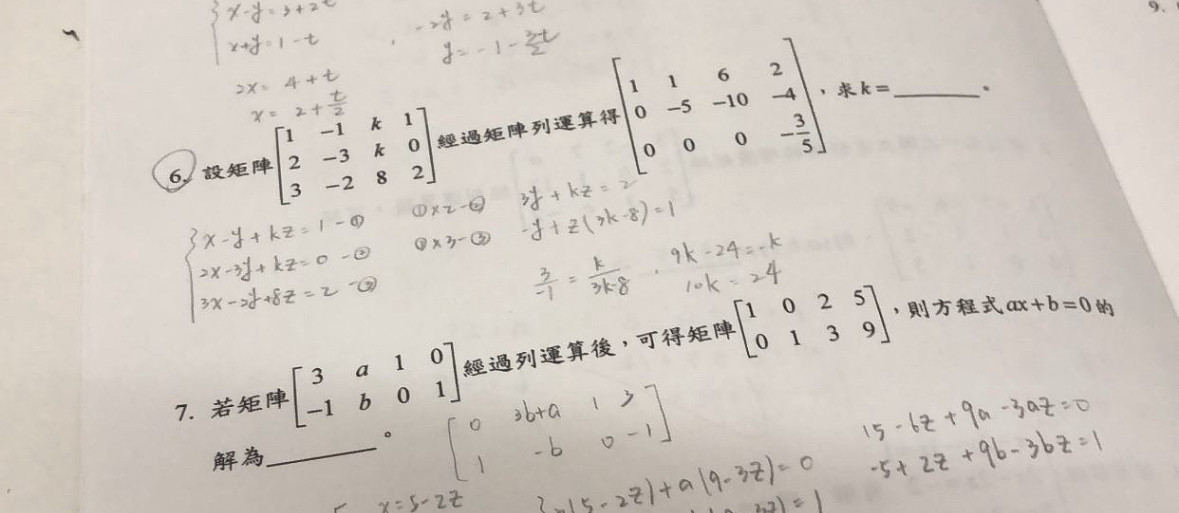 x-y=3+2t
x+y=1-t
-2y=2+3t
y=-1-3t/2
2x=4+t
x=2+t/2
6. 設矩陣 [1 -1 k 1; 2 -3 k 0; 3 -2 8 2] 經過矩陣列運算得 [1 1 6 2; 0 -5 -10 -4; 0 0 0 -3/5],求k=______。
x-y+kz=1-①
2x-3y+kz=0-②
3x-2y+8z=2-③
①x2-② 3y+kz=2
①x3-③ -y+z(3k-8)=1
3/-1=k/3k-8, 9k-24=-k
10k=24
7. 若矩陣 [3 a 1 0; -1 b 0 1] 經過列運算後,可得矩陣 [1 0 2 5; 0 1 3 9],則方程式ax+b=0的
解為______。
[0 3b+a 1 3; 1 -b 0 -1]
15-6z+9a-3az=0
-5+2z+9b-3bz=1
x=5-2z
(5-2z)+a(9-3z)=0
9.